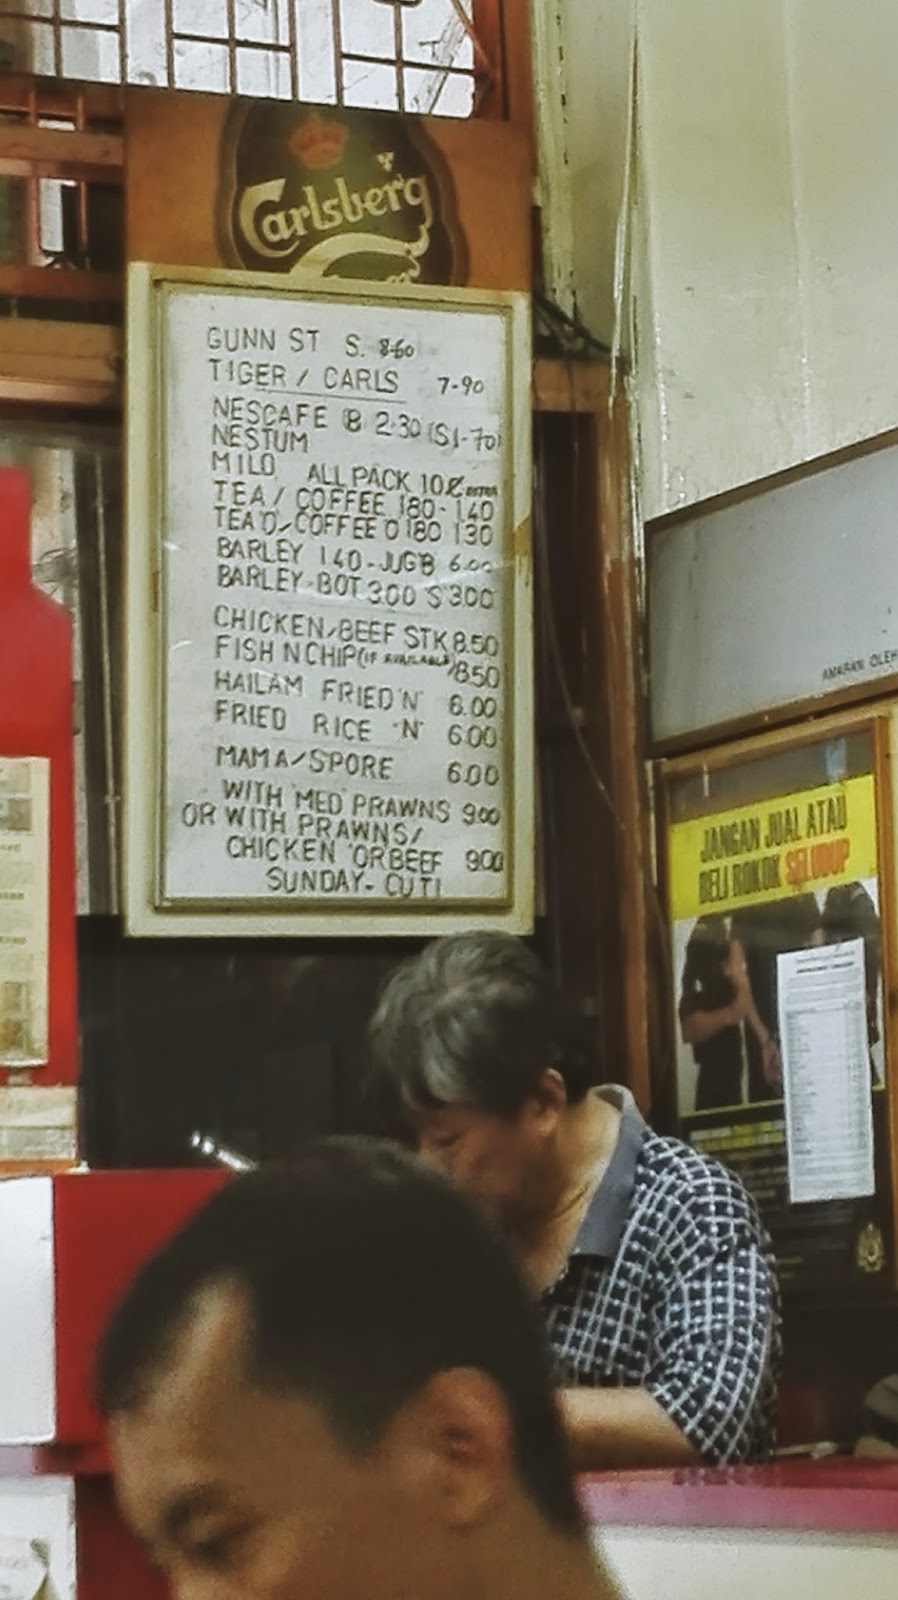 Carlsberg
GUNN ST S. 8-60
TIGER / CARLS 7-90
NESCAFE B 2-30 (S1-70)
NESTUM
MILO ALL PACK 10¢ EXTRA
TEA / COFFEE 180 - 140
TEA'O/COFFEE O 180 130
BARLEY 140-JUG'B 6.00
BARLEY-BOT 3.00 'S'3.00
CHICKEN/BEEF STK 8.50
FISH N CHIP (IF AVAILABLE) 8.50
HAILAM FRIED 'N' 6.00
FRIED RICE 'N' 6.00
MAMA/S'PORE 6.00
WITH 'MED' PRAWNS 9.00
OR WITH PRAWNS/
CHICKEN 'OR BEEF 9.00
SUNDAY - CUTI
AMARAN OLEH
JANGAN JUAL ATAU
BELI ROKOK SELUDUP